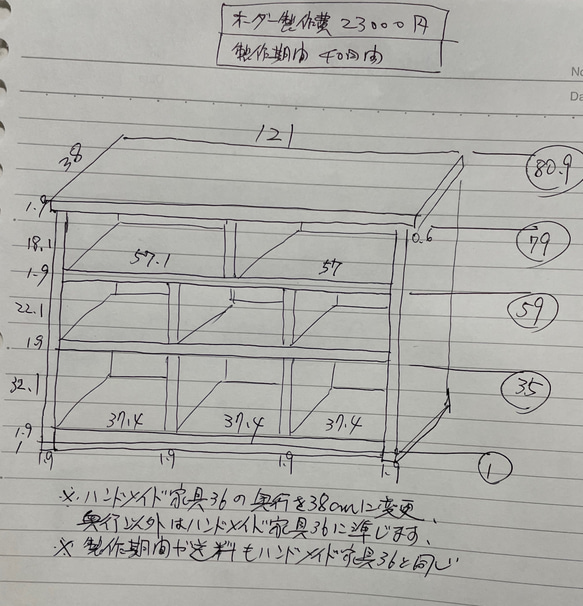 オーダー製作費 23000円
製作期間 40日間
No
Da
121
38
80.9
1.9
0.6
79
18.1
57.1
57
1.9
59
22.1
1.9
35
32.1
37.4
37.4
37.4
1.9
1
1.9
1.9
1.9
1.9
1
※ハンドメイド家具36の奥行を38cmに変更、
奥行以外はハンドメイド家具36に準じます、
※製作期間や送料もハンドメイド家具36と同じ